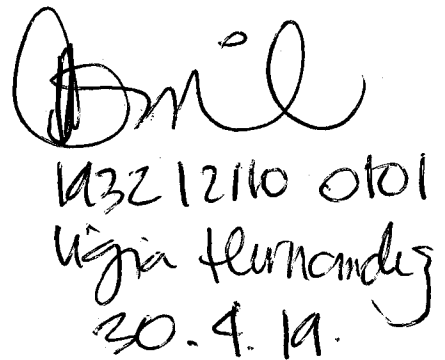 1932 12110 0101
Ligia Hernandez
30.4.19.